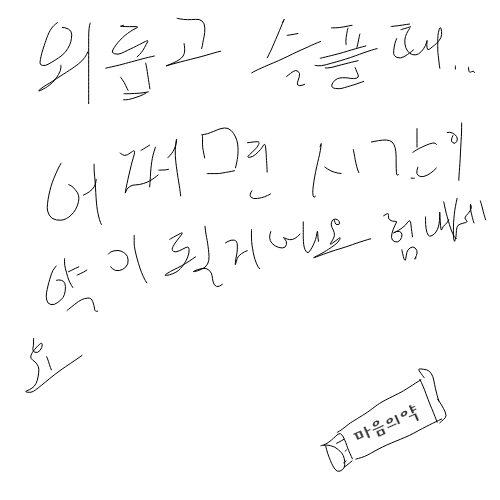 외롭고 슬플 때..
어쩌면 시간이
약이 될거에요 힘내세
요
마음의약